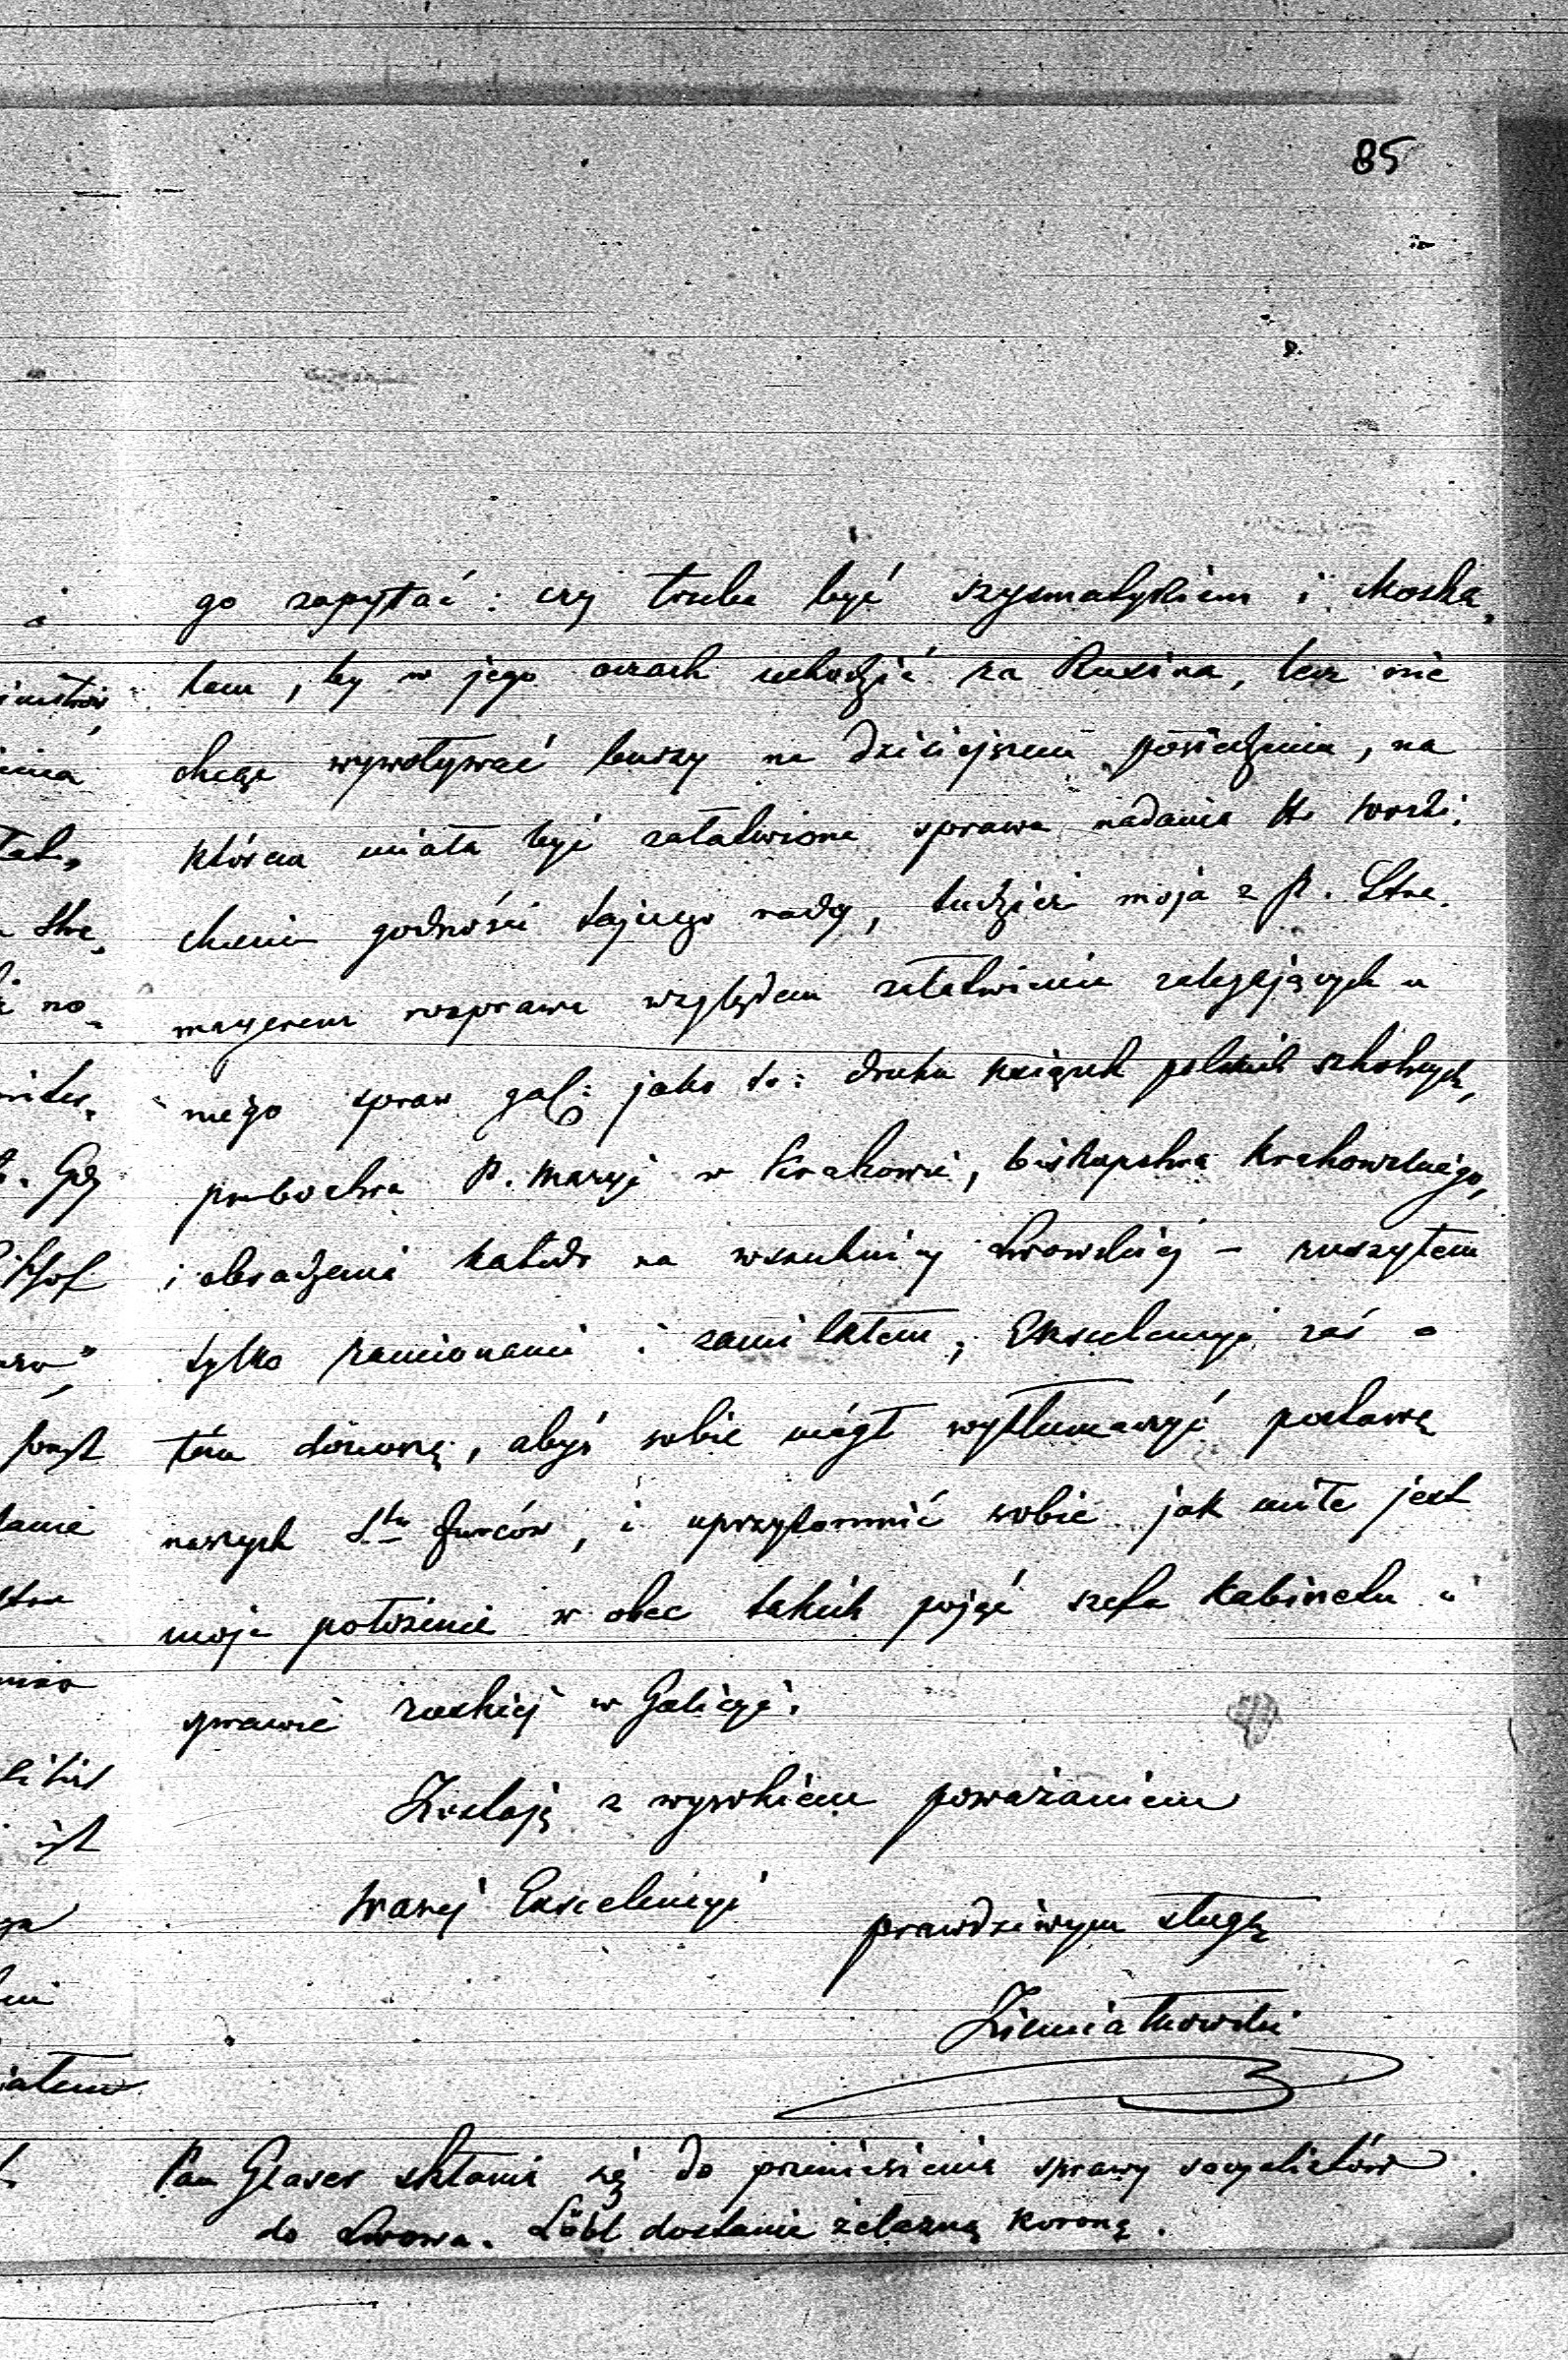 85
go zapytać: czy trzeba być szyzmatykiem i Moska„
lem, by w jego oczach uchodzić za Rusina, lecz nie
chcąc wywoływać burzy na dzisiejszem posiedzeniu, na
którem miała być załatwiona sprawa nadania
godności tajnego radcy, tudzież moja z p. Stre„
mayerem rozprawa względem załatwienia zalegających u
niego spraw gal: jako to: druku książek polskich szkolnych,
probostwa P. Maryi w Krakowie, biskupstwa Krakowskiego,
i obsadzenia katedr na wszechnicy Lwowskiej – ruszyłem
tylko ramionami i zamilkłem; Ekscelencyi zaś o
tém donoszę, abyś sobie mógł wytłumaczyć postawę
naszych Sto Jurców, i uprzytomnić sobie jak miłe jest
moje położenie w obec takich pojęć szefa Kabinetu o
sprawie ruskiej w Galicyi.
Zostaję z wysokiem poważaniem
Waszej Excelencyi
prawdziwym sługą
Ziemiałkowski
Pan Glaser skłania się do przeniesienia sprawy socyalistów
do Lwowa. Löbl dostanie żelazną koronę.